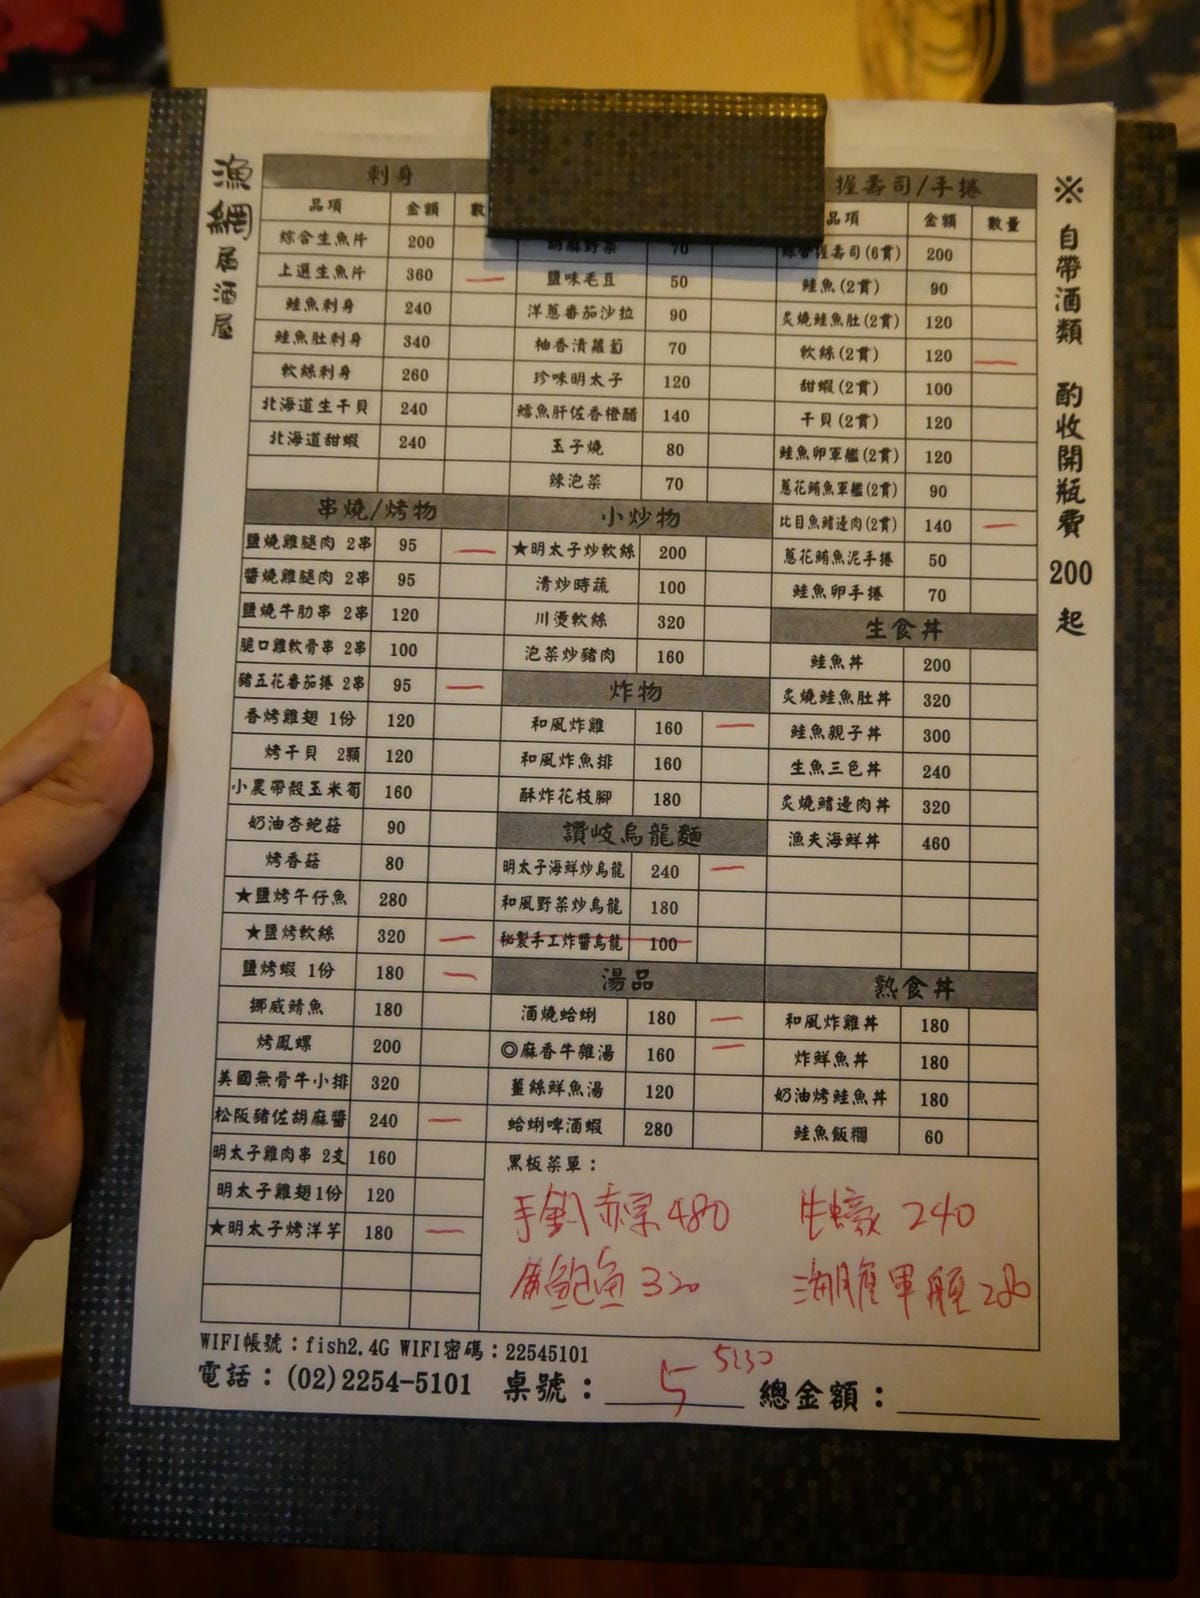 漁網居酒屋
刺身
品項 金額
綜合生魚片 200
上選生魚片 360 一
鮭魚刺身 240
鮭魚肚刺身 340
軟絲刺身 260
北海道生干貝 240
北海道甜蝦 240
串燒/烤物
鹽燒雞腿肉 2串 95 一
醬燒雞腿肉 2串 95
鹽燒牛肋串 2串 120
脆口雞軟骨串 2串 100
豬五花番茄捲 2串 95 一
香烤雞翅 1份 120
烤干貝 2顆 120
小農帶殼玉米筍 160
奶油杏鮑菇 90
烤香菇 80
★鹽烤午仔魚 280
★鹽烤軟絲 320 一
鹽烤蝦 1份 180 一
挪威鯖魚 180
烤鳳螺 200
美國無骨牛小排 320
松阪豬佐胡麻醬 240 一
明太子雞肉串 2支 160
明太子雞翅1份 120
★明太子烤洋芋 180 一
胡麻野菜 70
鹽味毛豆 50
洋蔥番茄沙拉 90
柚香漬蘿蔔 70
珍味明太子 120
鱈魚肝佐香橙醋 140
玉子燒 80
辣泡菜 70
小炒物
★明太子炒軟絲 200
清炒時蔬 100
川燙軟絲 320
泡菜炒豬肉 160
炸物
和風炸雞 160 一
和風炸魚排 160
酥炸花枝腳 180
讚岐烏龍麵
明太子海鮮炒烏龍 240 一
和風野菜炒烏龍 180
秘製手工炸醬烏龍 100
湯品
酒燒蛤蜊 180 一
◎麻香牛雜湯 160 一
薑絲鮮魚湯 120
蛤蜊啤酒蝦 280
握壽司/手捲
品項 金額 數量
綜合握壽司(6貫) 200
鮭魚(2貫) 90
炙燒鮭魚肚(2貫) 120
軟絲(2貫) 120 一
甜蝦(2貫) 100
干貝(2貫) 120
鮭魚卵軍艦(2貫) 120
蔥花鮪魚軍艦(2貫) 90
比目魚鰭邊肉(2貫) 140 一
蔥花鮪魚泥手捲 50
鮭魚卵手捲 70
生食丼
鮭魚丼 200
炙燒鮭魚肚丼 320
鮭魚親子丼 300
生魚三色丼 240
炙燒鰭邊肉丼 320
漁夫海鮮丼 460
熟食丼
和風炸雞丼 180
炸鮮魚丼 180
奶油烤鮭魚丼 180
鮭魚飯糰 60
※自帶酒類 酌收開瓶費200起
黑板菜單：
手釣赤宗480 生蠔 240
鮑魚320 海膽軍艦280
WIFI帳號：fish2.4G WIFI密碼：22545101
電話：(02)2254-5101 桌號：5 5130 總金額：